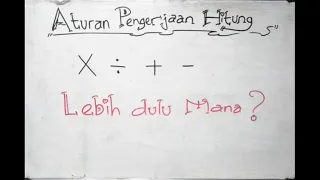 Aturan Pengerjaan Hitung
X ÷ + -
Lebih dulu Mana?